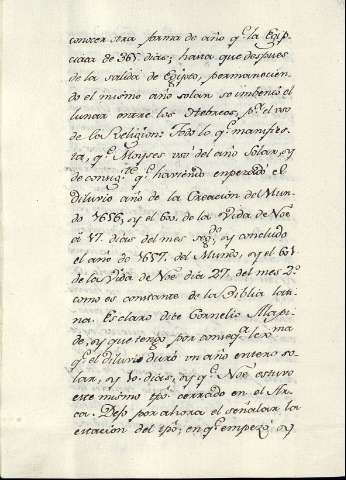 conocer otra forma de año q.e la Egip-
ciaca de 365 dias; hasta que despues
de la salida de Egipto, permanecien-
do el mismo año solar se imbentó el
lunar entre los Hebreos, p.a el uso
de la Religion: Todo lo q.e manifies-
ta, q.e Moyses usó del año Solar, y
de consig.te q.e haviendo empezado el
diluvio año de la Creacion del Mun-
do 1656, y el 600 de la Vida de Noè
á 17 dias del mes seg.do, y concluido
el año de 1657 del Mundo, y el 601
de la Vida de Noè dia 27 del mes 2.o
como es constante de la Biblia lati-
na. Es claro dice Cornelio Alapi-
de, y que tengo por conseq.a
q.e el diluvio duró un año entero so-
lar, y 10 dias, y q.e Noè estuvo
este mismo tpõ. cerrado en el Ar-
ca. Dejo por ahora el señalar la
estacion del tpõ; en q.e empezó, y